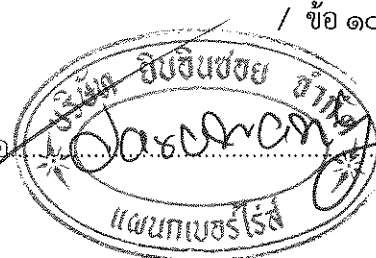 / ข้อ ๑๐
บริษัท ยิบอินซอย จำกัด
แผนกเบอร์โร่ส์